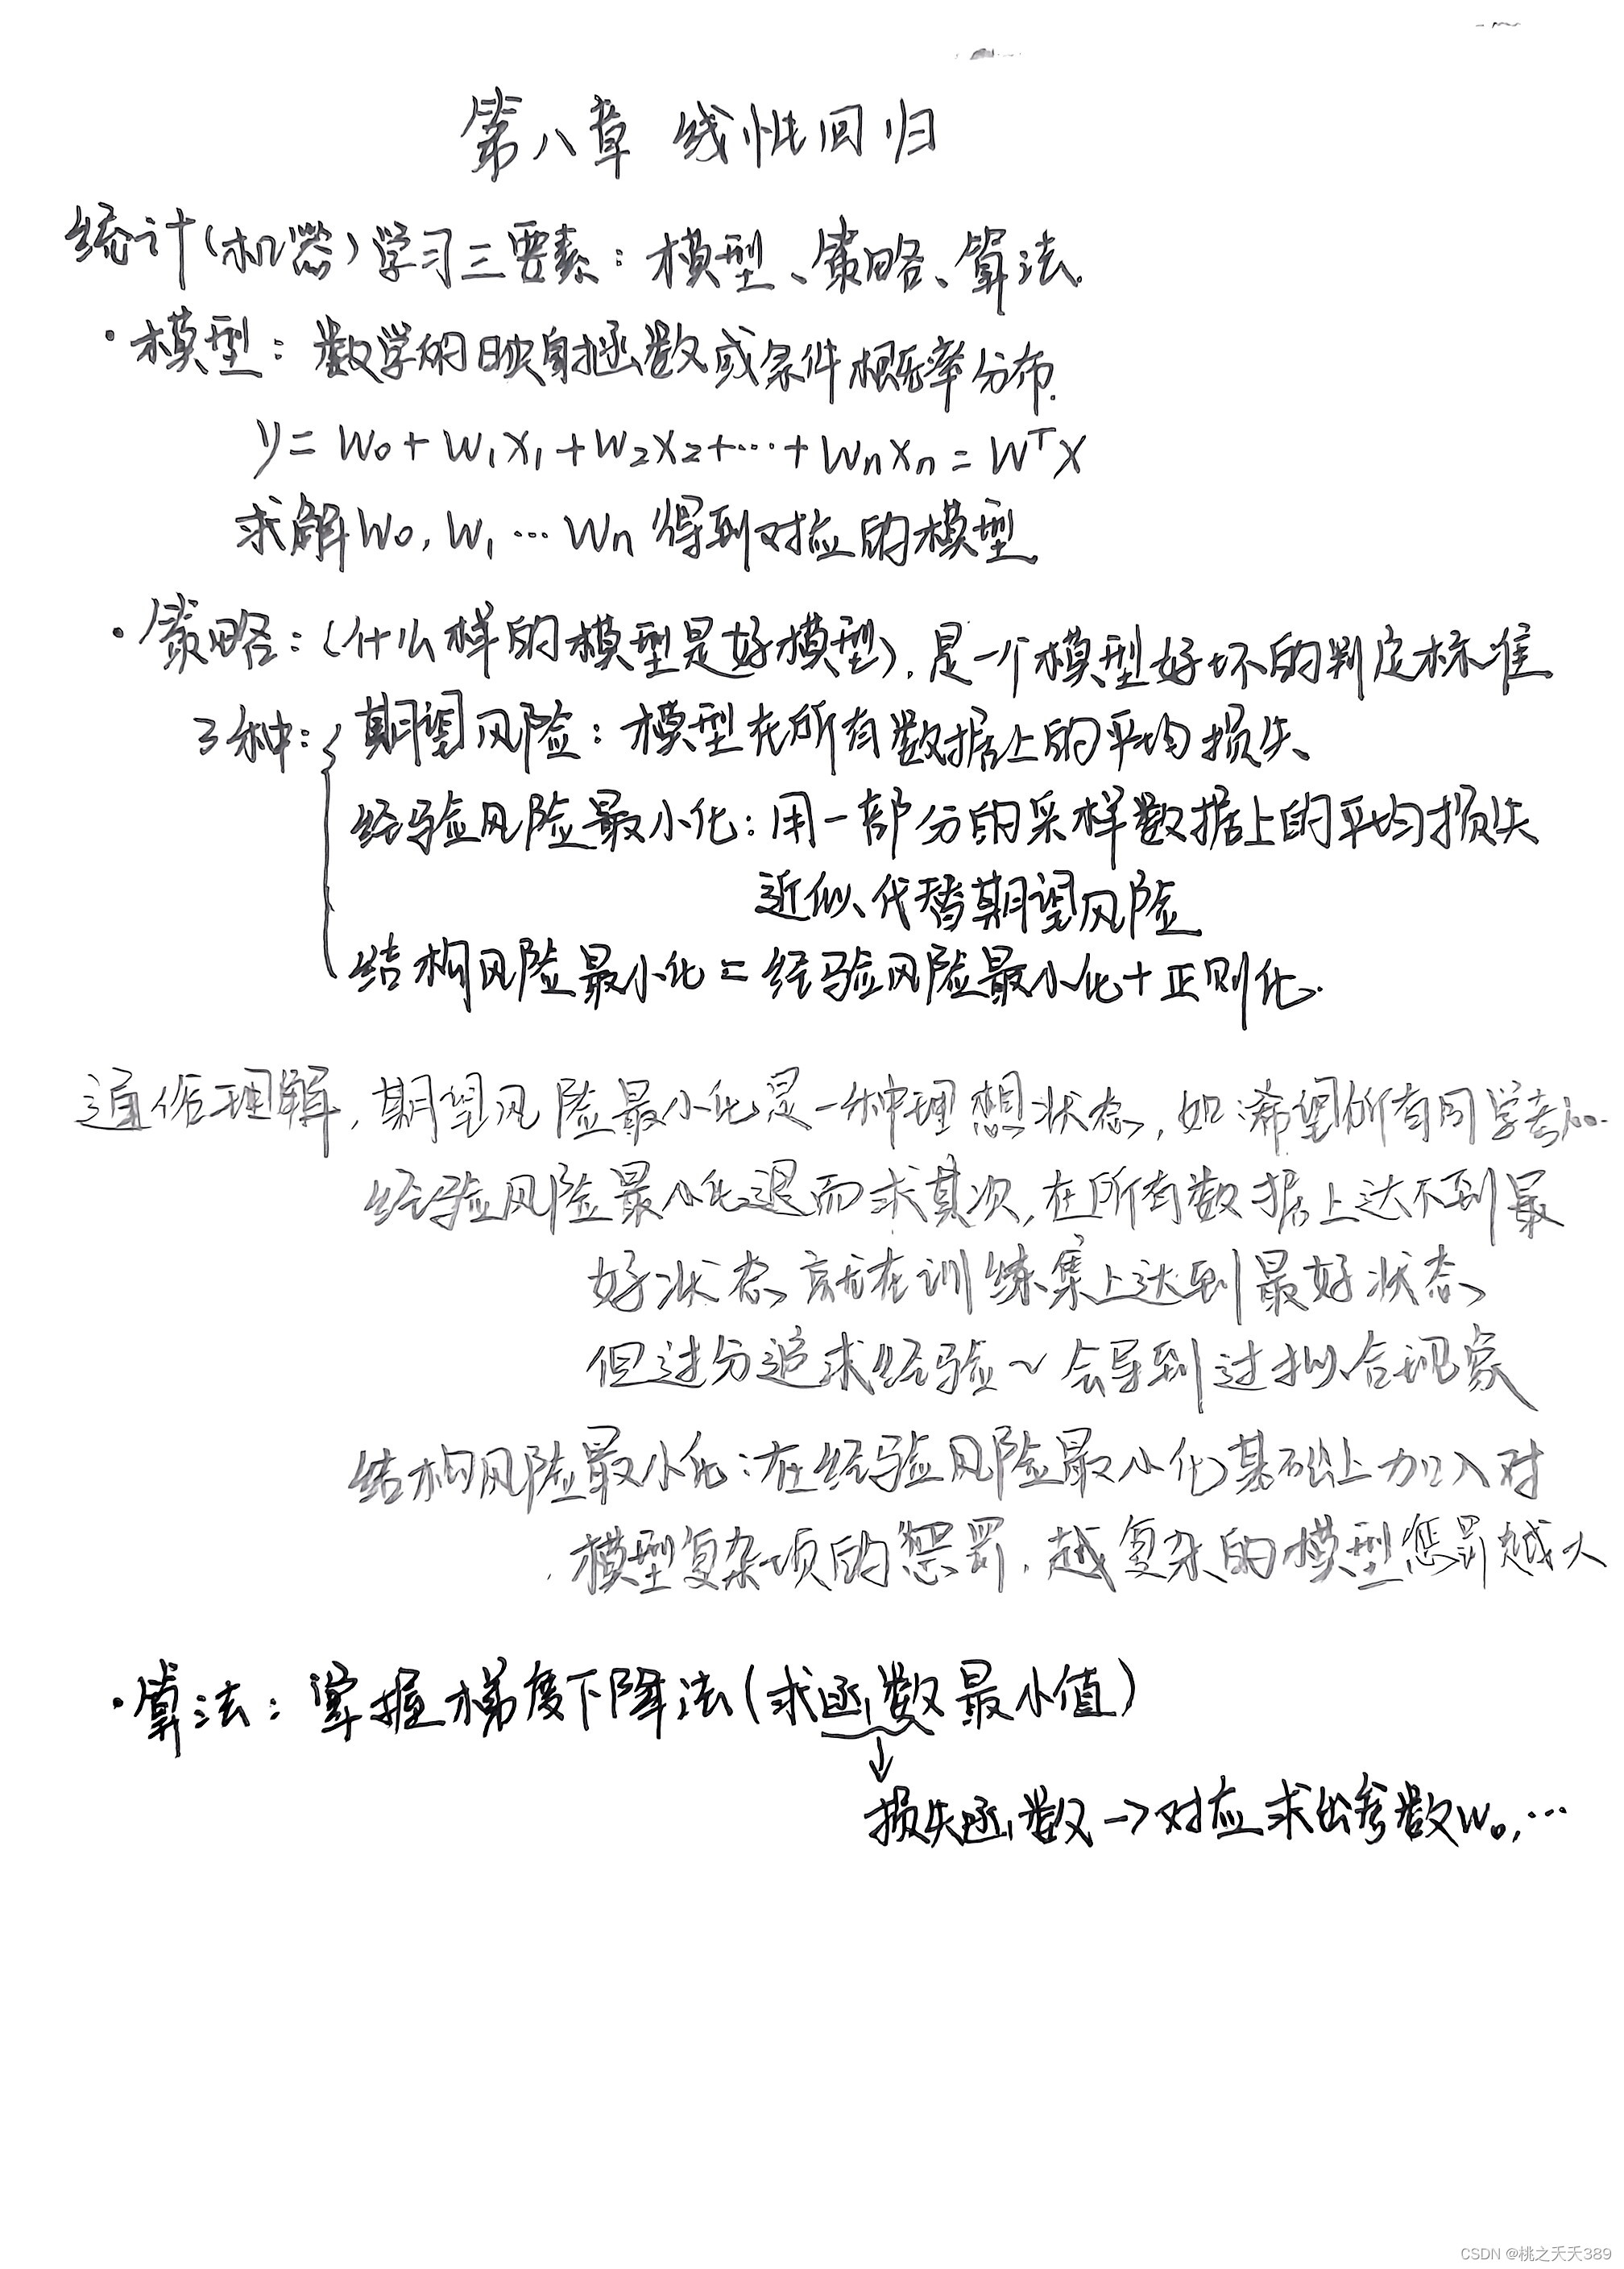 第八章 线性回归
统计(机器)学习三要素：模型、策略、算法.
·模型：数学的映射函数或条件概率分布.
y = w₀ + w₁x₁ + w₂x₂ + … + wₙxₙ = Wᵀx
求解w₀, w₁ … wₙ 得到对应的模型.
·策略：(什么样的模型是好模型), 是一个模型好坏的判定标准
3种：{ 期望风险：模型在所有数据上的平均损失
经验风险最小化：用一部分的采样数据上的平均损失
近似代替期望风险
结构风险最小化 = 经验风险最小化 + 正则化.
通俗理解, 期望风险最小化是一种理想状态, 如:希望所有同学考100.
经验风险最小化退而求其次, 在所有数据上达不到最
好状态, 就在训练集上达到最好状态
但过分追求经验~会导到过拟合现象
结构风险最小化：在经验风险最小化基础上加入对
模型复杂项的惩罚. 越复杂的模型惩罚越大
·算法：掌握梯度下降法(求函数最小值)
↓
损失函数 → 对应求出参数w₀, …
CSDN @桃之夭夭389